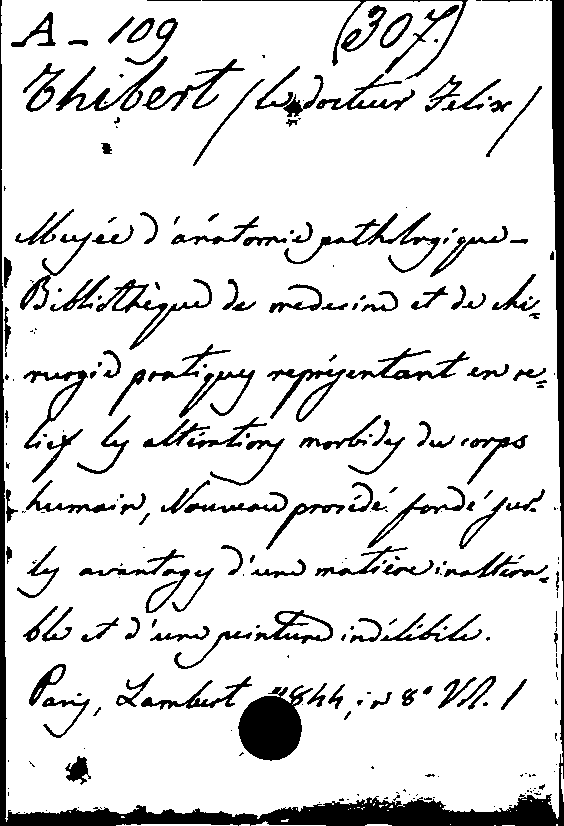 A - 109 (307.)
Thibert / le docteur Felix /
Musée d'anatomie pathologique -
Bibliothèque de medecine et de chi=
rurgie pratiques représentant en re=
lief les altérations morbides du corps
humain, Nouveau procédé fondé sur
les avantages d'une matière inaltéra=
ble et d'une peinture indélébile.
Paris, Lambert 1844, in 8° Vol. 1